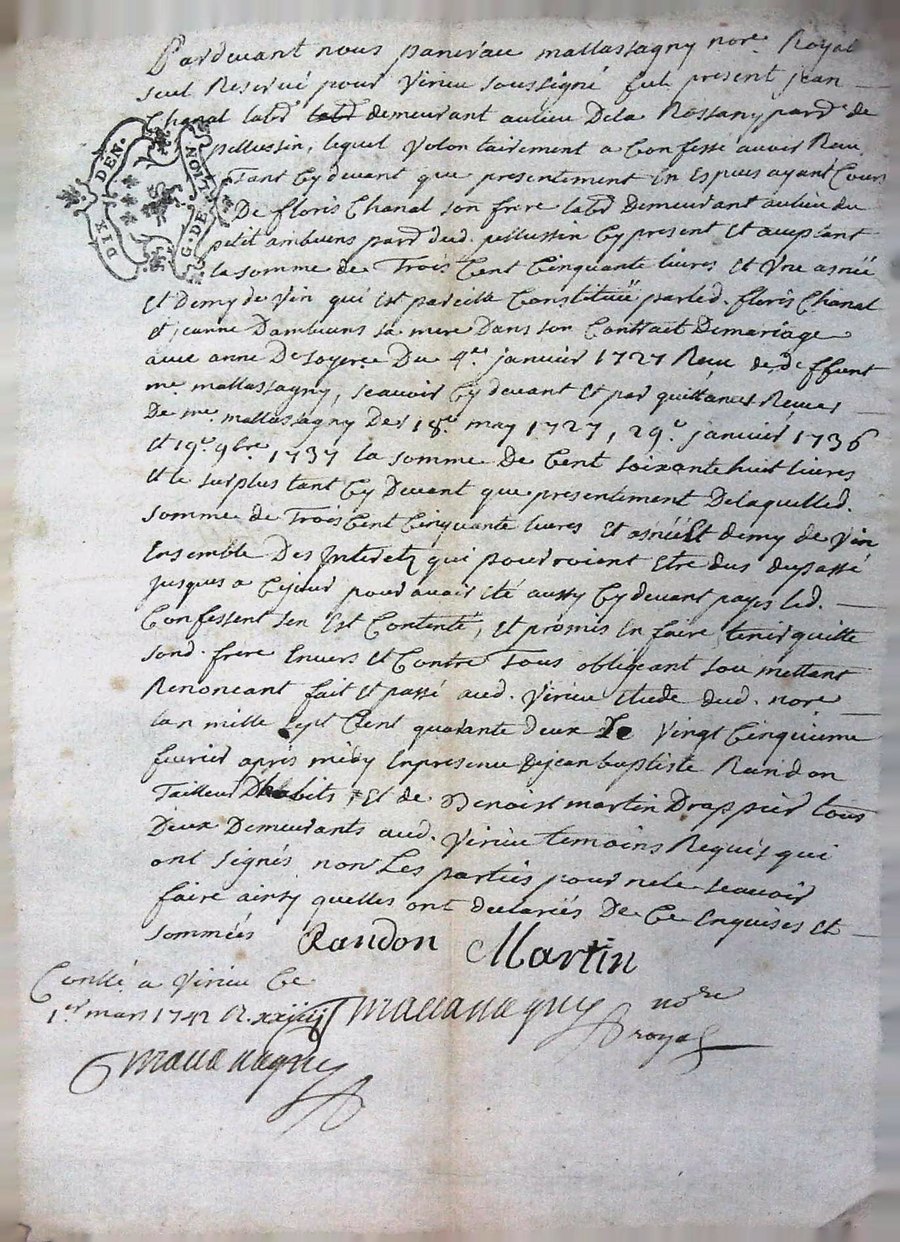 Pardevant nous pancrace mallassagny nore. Royal
seul Reservé pour Virieu soussigné fut present jean
Chanal labr. demeurant aulieu Dela Rossany parr.e de
pellussin, lequel Volontairement a Confessé auoir Receu
tant Cy devant que presentement En Espèces ayant Cours
De floris Chanal son frere labr Demeurant aulieu du
petit ambuens parr dud. pellussin Cy present Et acceptant
la somme de Trois Cent Cinquante livres Et Vne asnée
Et Demy de Vin qui Est pareille Constituée parled. floris Chanal
Et jeanne Dambuens sa mere Dans son Contract De mariage
auec anne De soyere Du 4.e janvier 1727 Receu de deffunt
me mallassagny, scauoir Cy devant Et par quittances Receues
De me. mallassagny Des 18.e may 1727, 29.e janvier 1736
Et 19.e 9bre. 1737 la somme De Cent soixante huit livres
Et le surplus tant Cy Devant que presentement De laquelled.
somme de Trois Cent Cinquante livres Et asnée Et demy de Vin
Ensemble Des Interetz qui pourroient Etre dus dupassé
jusques a Cejour pour avoir été aussy Cy devant payes led.
Confessant sen Est Contenté, Et promis En faire tenir quitte
sond. frere Envers Et Contre Tous obligeant soumettant
Renonceant fait Et passé aud. Virieu Etude dud. nore
lan mille sept Cent quarante deux Le Vingt Cinquieme
fevrier après midy Enpresence De jean baptiste Randon
Tailleur D'habits, Et de Benoist martin Drappier tous
Deux Demeurants aud. Virieu temoins Requis qui
ont signés non Les parties pour nele scauoir
faire ainsy quelles ont declarées De Ce Enquises Et
sommées
Randon Martin
Conllé a Virieu Ce
1.er mars 1742 R. xxiiij s mallassagny nore
royal
mallassagny
DEN.
NOITL
DIX
G. DE